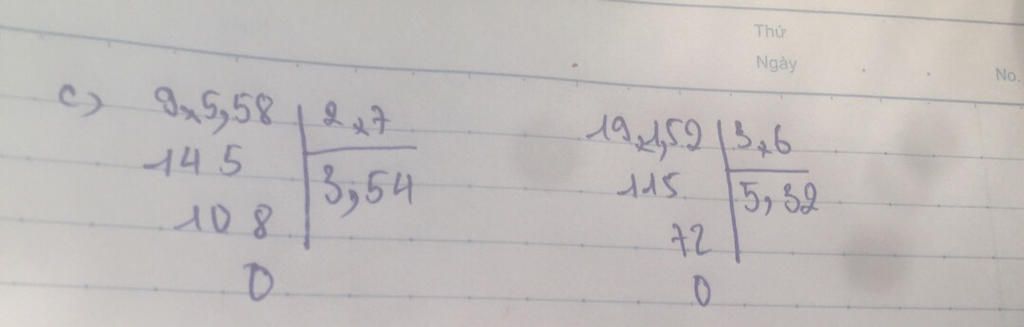 Thứ
Ngày
No.
c) 9,5,58 2,7
14 5 3,54
10 8
0
19,1,52 3,6
115 5,32
72
0